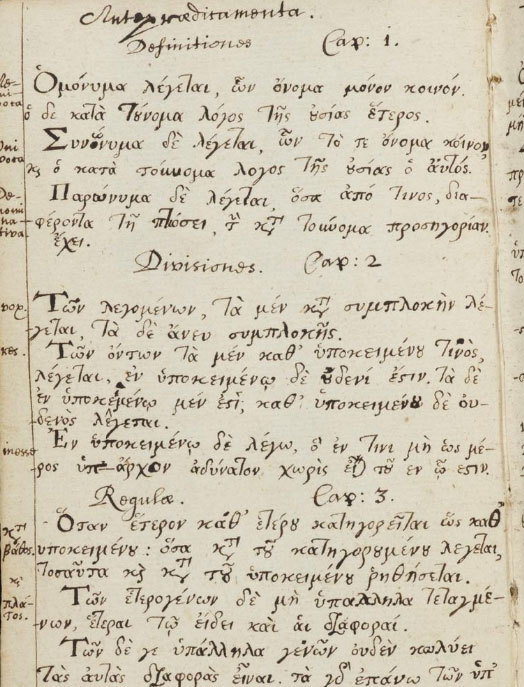 Antepraedicamenta.
Definitiones Cap: 1.
Ὁμόνυμα λέγεται, ὧν ὄνομα μόνον κοινόν.
ὁ δε κατὰ τὔνομα λόγος τῆς ȣσίας ἕτερος.
Συνώνυμα δὲ λέγεται, ὧν τό τε ὄνομα κοινον
κ ὁ κατὰ τοὔνομα λογος τῆς ȣσίας ὁ αυτός.
Παρώνυμα δὲ λέγεται, ὅσα από τινος, δια-
φέροντα τῇ πτώσει, τ κτ τοὔνομα προσηγορίαν
ἔχει.
Divisiones. Cap: 2
Τῶν λεγομένων, τὰ μέν κτ συμπλοκὴν λέ-
γεται, τὰ δὲ ἄνευ συμπλοκῆς.
Τῶν ὄντων τὰ μέν καθ' ὑποκειμένȣ τινὸς,
λέγεται, ἐν ὑποκειμένῳ δὲ ȣδενί ἐστιν. τὰ δὲ
ἐν ὑποκειμένῳ μέν ἐστὶ, καθ' ὑποκειμένȣ δὲ ȣ-
δενὸς λέγεται.
Ἐν ὑποκειμένῳ δὲ λέγω, ὅ ἐν τινι μὴ ὡς μέ-
ρος ὑπάρχον αδύνατον χωρὶς εἶ τȣ ἐν ᾧ εστιν.
Regulæ. Cap: 3.
Ὅταν ἕτερον καθ' ετέρȣ κατηγορεῖται ὡς καθ'
υποκειμένȣ: ὅσα κτ τȣ κατηγορȣμένȣ λεγεται,
τοσαῦτα κ κτ τȣ ὑποκειμένȣ ῥηθήσεται.
Τῶν ετερογένων δὲ μὴ ὑπαλληλα τεταγμέ-
νων, ἕτεραι τῷ εἴδει καὶ ἁι διαφοραί.
Τῶν δέ γε ὑπάλληλα γενῶν ουδὲν κωλύει
τὰς αὐτὰς διαφορὰς εἶναι. τὰ γδ επάνω τῶν ὑπ'
inesse
κτ
βάθος
κ
πλά-
τος.